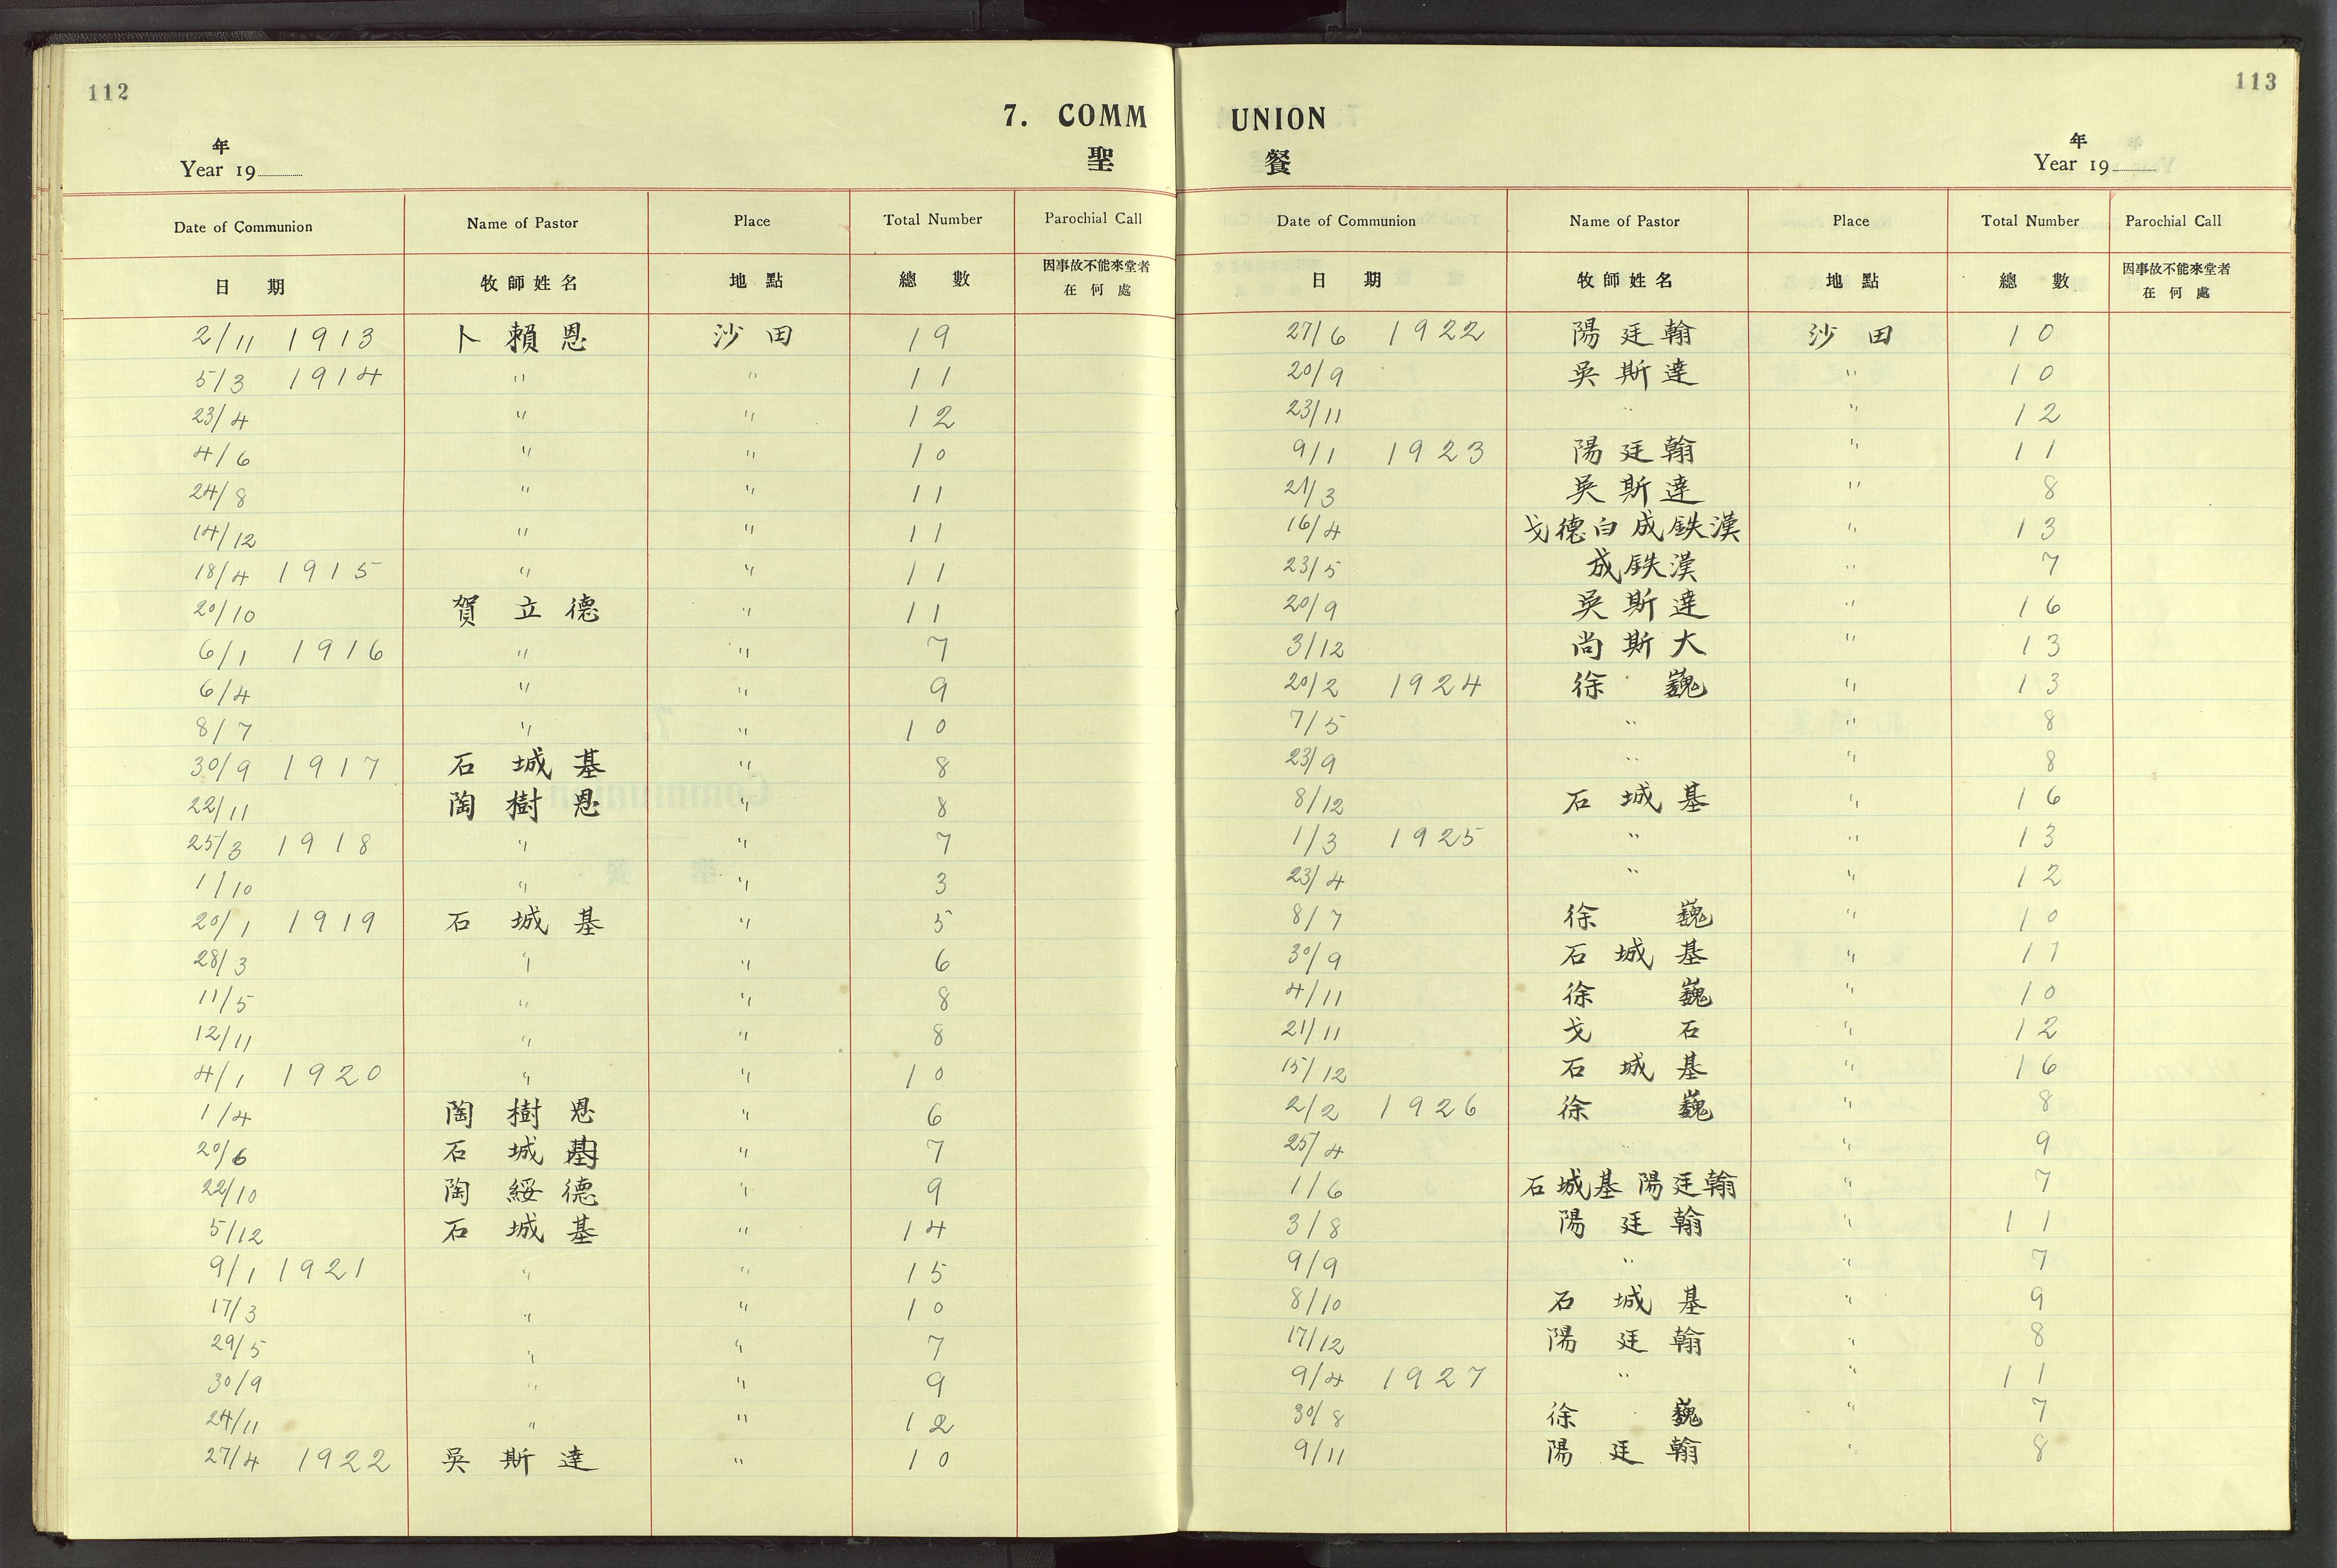 112
7. COMM
聖
年
Year 19
Date of Communion Name of Pastor Place Total Number Parochial Call
日 期 牧師姓名 地點 總數 因事故不能來堂者在何處
2/11 1913 卜賴恩 沙田 19
5/3 1914 " " 11
23/4 " " 12
4/6 " " 10
24/8 " " 11
14/12 " " 11
18/4 1915 " " 11
20/10 賀立德 " 11
6/1 1916 " " 7
6/4 " " 9
8/7 " " 10
30/9 1917 石城基 " 8
22/11 陶樹恩 " 8
25/3 1918 " " 7
1/10 " " 3
20/1 1919 石城基 " 5
28/3 " " 6
11/5 " " 8
12/11 " " 8
4/1 1920 " " 10
1/4 陶樹恩 " 6
20/6 石城基 " 7
22/10 陶綏德 " 9
5/12 石城基 " 14
9/1 1921 " " 15
17/3 " " 10
29/5 " " 7
30/9 " " 9
24/11 " " 12
27/4 1922 吳斯達 " 10
113
UNION
餐
年
Year 19
Date of Communion Name of Pastor Place Total Number Parochial Call
日 期 牧師姓名 地點 總數 因事故不能來堂者在何處
27/6 1922 陽廷翰 沙田 10
20/9 吳斯達 " 10
23/11 " " 12
9/1 1923 陽廷翰 " 11
21/3 吳斯達 " 8
16/4 戈德白 成鉄漢 " 13
23/5 成鉄漢 " 7
20/9 吳斯達 " 16
3/12 尚斯大 " 13
20/2 1924 徐巍 " 13
7/5 " " 8
23/9 " " 8
8/12 石城基 " 16
1/3 1925 " " 13
23/4 " " 12
8/7 徐巍 " 10
30/9 石城基 " 11
4/11 徐巍 " 10
21/11 戈石 " 12
15/12 石城基 " 16
2/2 1926 徐巍 " 8
25/4 " " 9
1/6 石城基 陽廷翰 " 7
3/8 陽廷翰 " 11
9/9 " " 7
8/10 石城基 " 9
17/12 陽廷翰 " 8
9/4 1927 " " 11
30/8 徐巍 " 7
9/11 陽廷翰 " 8